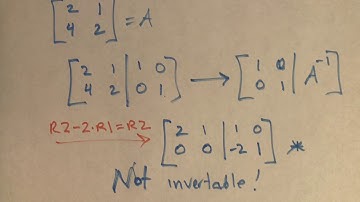 [2 1
4 2] = A
[2 1 | 1 0
4 2 | 0 1] → [1 0
0 1 | A⁻¹]
R2-2·R1=R2 → [2 1 | 1 0
0 0 | -2 1] *
Not invertable!